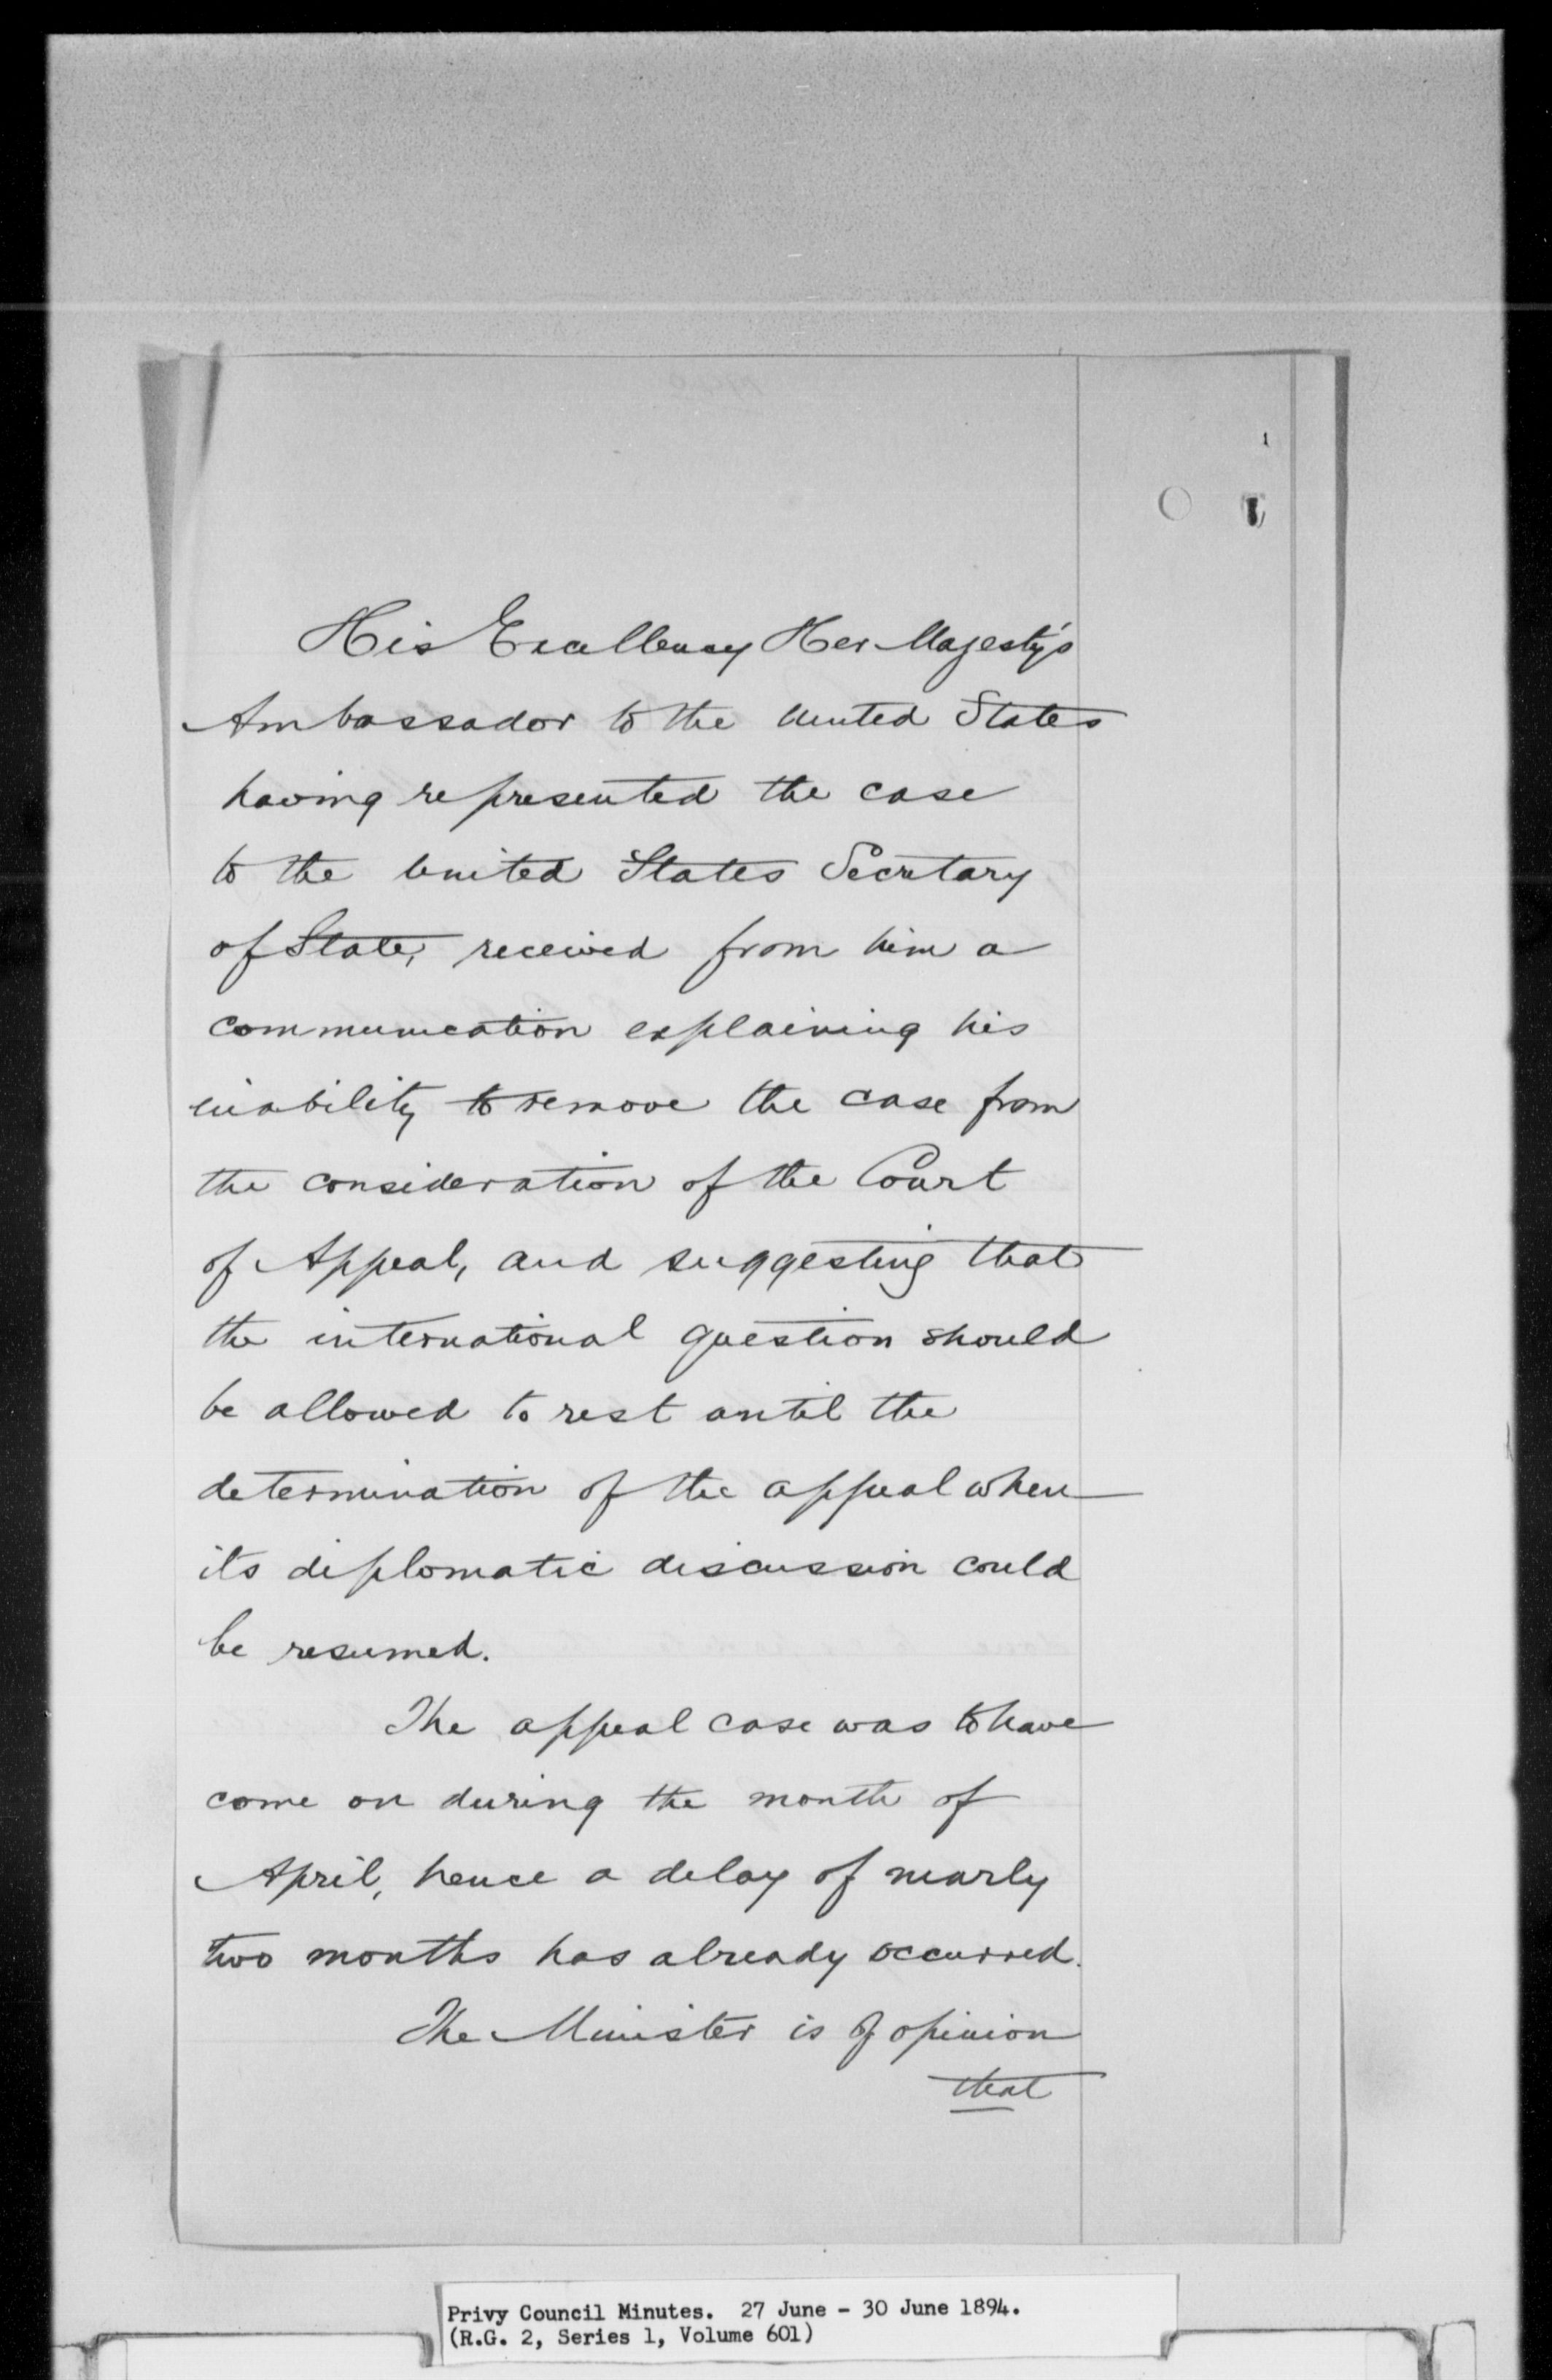 His Excellency Her Majesty's
Ambassador to the United States
having represented the case
to the United States Secretary
of State, received from him a
communication explaining his
inability to remove the case from
the consideration of the Court
of Appeal, and suggesting that
the international question should
be allowed to rest until the
determination of the appeal when
its diplomatic discussion could
be resumed.
The appeal case was to have
come on during the month of
April, hence a delay of nearly
two months has already occurred.
The Minister is of opinion
that
Privy Council Minutes. 27 June - 30 June 1894.
(R.G. 2, Series 1, Volume 601)